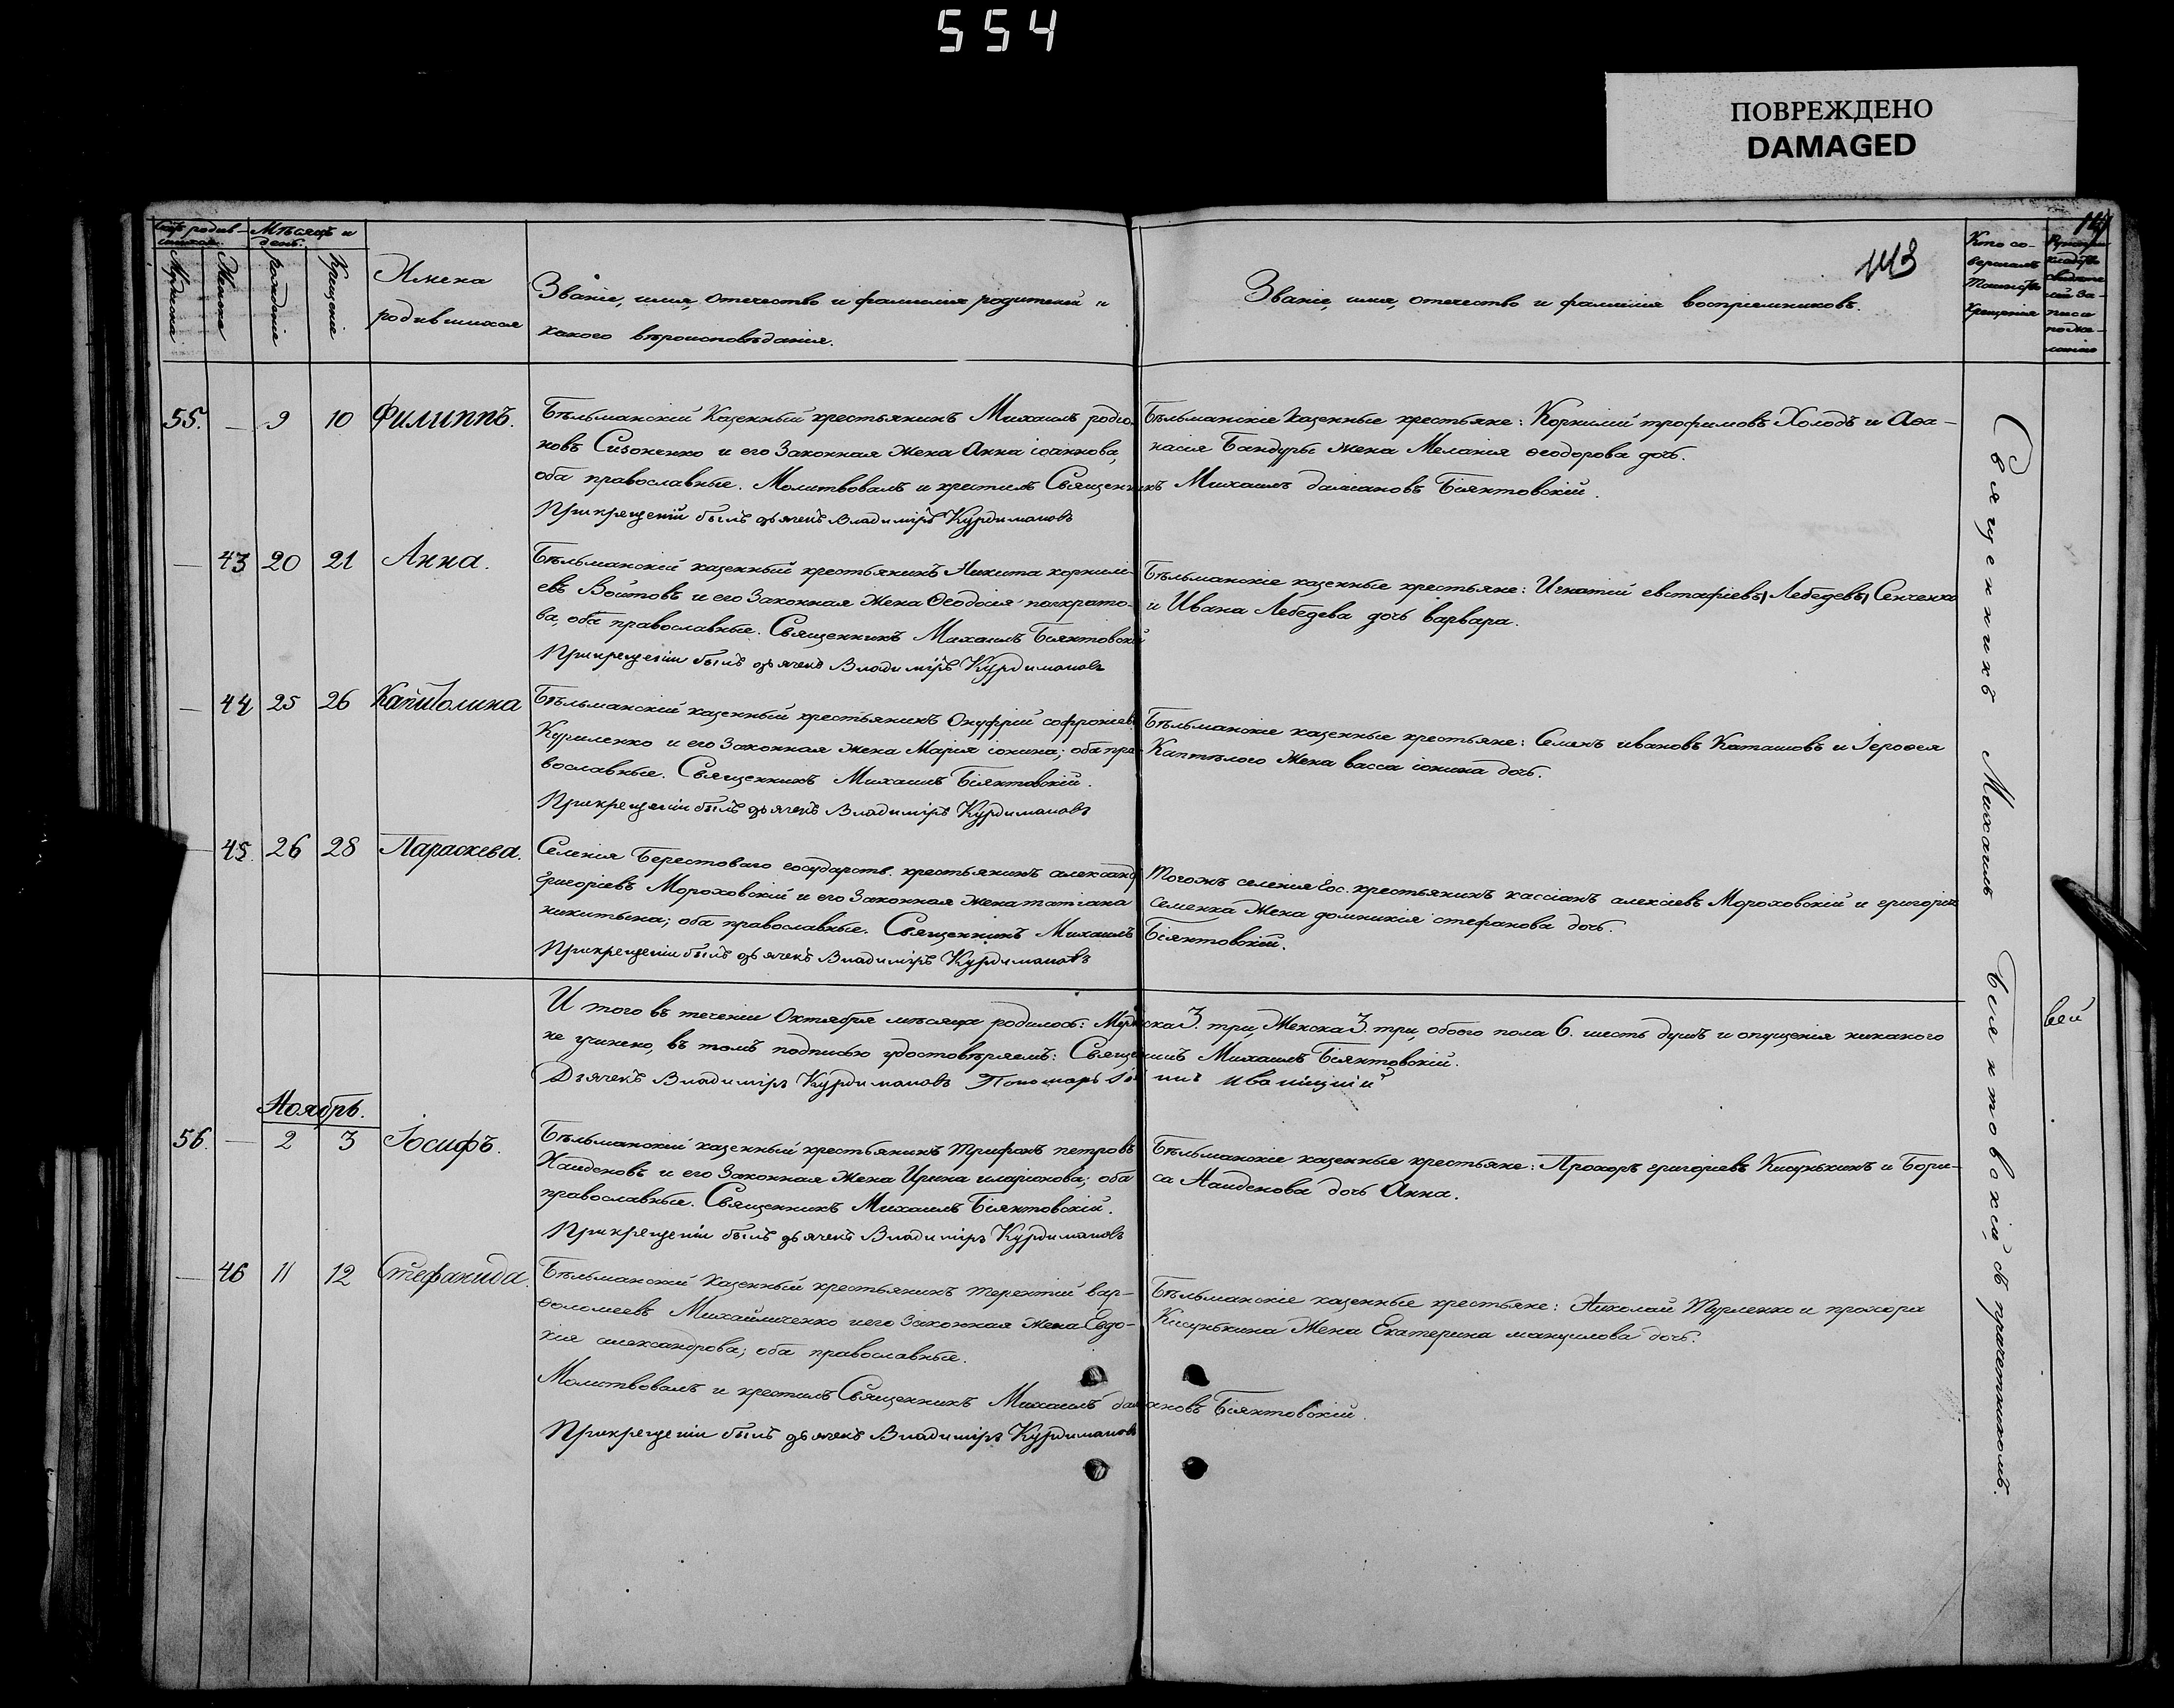 554
ПОВРЕЖДЕНО
DAMAGED
113
Мѣсяцъ и
день.
Женска
рожденіе
Крещеніе
Имена
родившихся
Званіе, имя, отечество и фамилія родителей и
какого вѣроисповѣданія.
Званіе, имя, отечество и фамилія воспріемниковъ.
Кто со-
вершалъ
Таинство
крещенія
55. — 9 10 Филиппъ.
Бѣльманскій Казенный крестьянинъ Михаилъ родіо-
новъ Сизоненко и его Законная Жена Анна іоаннова,
оба православные. Молитвовалъ и крестилъ Священникъ Михаилъ даміановъ Біянтовскій.
При крещеніи былъ дьячекъ Владиміръ Курдимановъ
Бѣльманскіе казенные крестьяне: Корнилий трофимовъ Холодъ и Аѳа-
насія Бандуры жена Меланія ѳеодорова дочь.
— 43 20 21 Анна.
Бѣльманскій казенный крестьянинъ Никита корнилі-
евъ Войтовъ и его Законная Жена Ѳеодосія панкрато-
ва, оба православные. Священникъ Михаилъ Біянтовскій
При крещеніи былъ дьячекъ Владиміръ Курдимановъ
Бѣльманскіе казенные крестьяне: Игнатій евстафіевъ Лебедевъ Сенченко
и Ивана Лебедева дочь варвара.
— 44 25 26 Капитолина
Бѣльманскій казенный крестьянинъ Онуфрій софроніевъ
Куриленко и его Законная жена Марія іонина; оба пра-
вославные. Священникъ Михаилъ Біянтовскій.
При крещеніи былъ дьячекъ Владиміръ Курдимановъ
Бѣльманскіе казенные крестьяне: Семенъ ивановъ Каташовъ и Іероѳея
Жена васса іонина дочь.
— 45. 26 28 Параскева.
Селенія Берестоваго государств. крестьянинъ александръ
григоріевъ Мороховскій и его Законная жена татіана
никитина; оба православные. Священникъ Михаилъ Біянтовскій.
При крещеніи былъ дьячекъ Владиміръ Курдимановъ
Тогожъ селенія гос. крестьянинъ кассіанъ алексіевъ Мороховскій и григорія
семенка Жена домникія стефанова дочь.
И того въ теченіи Октября мѣсяца родилось: Мужска 3. три, Женска 3. три, обоего пола 6. шесть душъ и опущенія никакого
не учинено, въ томъ подписью удостовѣряемъ: Священникъ Михаилъ Біянтовскій.
Дьячекъ Владиміръ Курдимановъ Пономарь Иваницкій
Ноябрь.
56. — 2 3 Іосифъ.
Бѣльманскій казенный крестьянинъ трифонъ петровъ
Найденовъ и его Законная Жена Ирина иларіонова; оба
православные. Священникъ Михаилъ Біянтовскій.
При крещеніи былъ дьячекъ Владиміръ Курдимановъ
Бѣльманскіе казенные крестьяне: Прохоръ григоріевъ Кисунькинъ и Бори-
са Найденова дочь Анна.
— 46 11 12 Стефанида.
Бѣльманскій казенный крестьянинъ терентій вар-
ѳоломеевъ Михайличенко и его Законная Жена Евдо-
кія александрова; оба православные.
Молитвовалъ и крестилъ Священникъ Михаилъ даміановъ Біянтовскій.
При крещеніи былъ дьячекъ Владиміръ Курдимановъ
Бѣльманскіе казенные крестьяне: Николай Турленко и прохора
Кисунькина Жена Екатерина мануилова дочь.
Священникъ Михаилъ Біянтовскій, съ причетникомъ.
вей